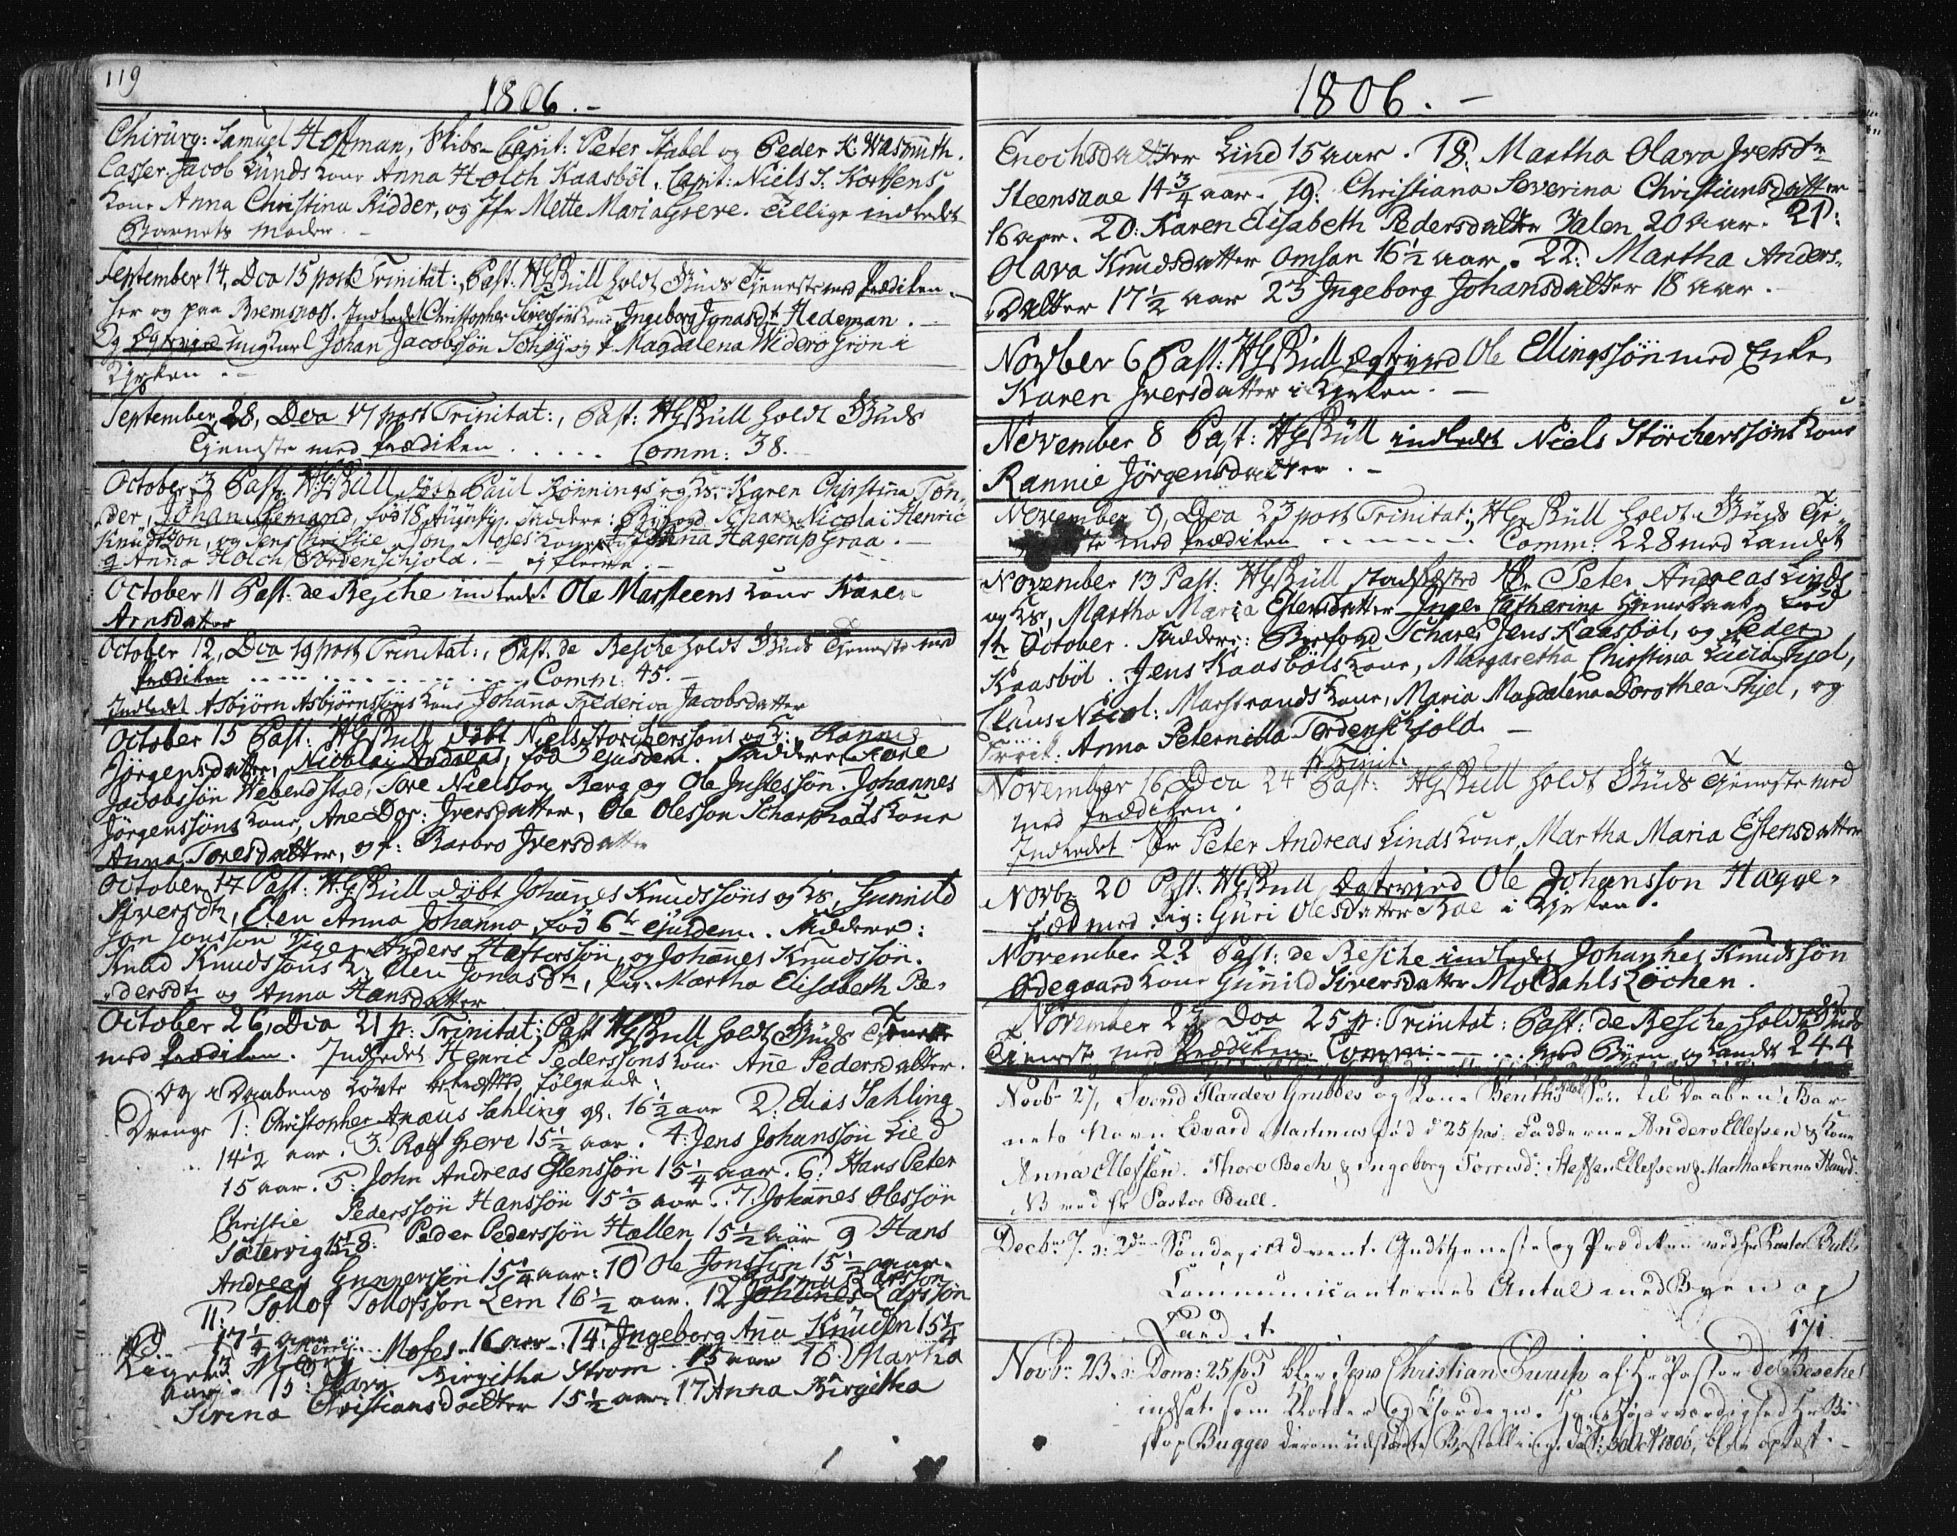 119
1806.-
Chirurg: Samuel Hoffman, Skibs-Capit: Peter Stabel og Peder K: Wasmuth.
Casser: Jacob Lunds Kone Anna Holch Kaasböl, Capit: Niels S. Knutsens
Kone Anna Christina Ridder, og Jfr Mette Maria Greve. Tillige indledet
Barnets Moder.-
September 14, Dca 15 post Trinitat:, Past: HGBüll holdt Guds Tieneste med Prædiken
her og paa Bremsnes. Indledet Christopher Kone Ingeborg Jonasdt Hedeman.-
Og Ægtevied Ungkarl Johan Jacobssön Schöy og Magdalena Widerö Grön i
Kirken.-
September 28, Dca 17 post Trinitat:, Past: HGBüll holdt Guds
Tieneste med Prædiken ..... Comm: 38.-
October 3 Past: HGBüll döbt Paul Rönnings og Hs. Karen Christina Ton-
der, Johan födt 18 Faddere: Byfogd Schare, Nicolai Henric
Knudtzon, og Jens Christie, Jon Moses Kone Anna Hagerup Graa.-
og Anna Holch Tordenschjold.- og fleere.-
October 11 Past: de Besche indledet Ole Marsteens Kone Karen
Arnsdatter
October 12, Dca 19 post Trinitat:, Past: de Besche holdt Guds Tieneste med
Prædiken ........ Comm: 45.-
Indledet Asbjörn Asbjörnssöns Kone Johanna Frederica Jacobsdatter
October 15 Past: HGBüll döbt Niels Storcherssöns og H: Rannie
Jörgensdatter, Nicolai Andreas, föd Ejusdem. Faddere: Tore
Jacobssön Webenstad, Tore Nielsson Berg og Ole Justessön. Johannes
Jörgenssöns Kone, Ane Dor: Iversdatter, Ole Olesson Scharsnæs Kone
Anna Toresdatter, og p: Barbro Iversdatter
October 17 Past: HGBüll döbt Johannes Knudssöns og Hs. Gunnild
Siversdtr, Elen Anna Johanna, föd 6te Ejusdem. Faddere:
Jon Jonsson Anders Haftorssön, og Johannes Knudssön.
Knud Knudssöns K: Elen Jonasdtr, Pig: Martha Elisabeth Pe-
dersdtr og Anna Hansdatter
October 26, Dca 21 p: Trinitat: Past HGBüll holdt Guds Tieneste
med Prædiken. Indledet Henric Pederssöns Kone Anne Pedersdatter.
Og Daabens Löfte bekræfted fölgende:
Drenge 1: Christopher Anæus Sahling gl. 16 1/2 aar 2: Elias Sahling
14 1/2 aar. 3: Rolf Greve 15 1/2 aar. 4: Jens Johanssön Lied
15 aar. 5: John Andreas Estenssön 15 1/4 aar. 6: Hans Peter
Christie Pederssön Hanssön 15 1/3 aar. 7: Johannes Olessön
Sætervig 15 1/2 8: Peder Pederssön Hallen 15 1/2 aar 9 Hans
Andreas Gunnerssön 15 1/4 aar: 10 Ole Jonssön 15 1/2 aar.
11: Tollof Tollofsson Lern 16 1/2 aar. 12 Rasmus Larsson
17 1/4 aar Moses 16 aar 14: Ingeborg Ana Knudsen 15 1/4
aar. 15: Marg Birgitha Strom. 15 aar 16: Martha
Sirina Christiansdaatter 15 1/2 aar. 17 Anna Birgitha
1806.-
Enochsdatter Lind 15 aar. 18: Martha Olava Iversdtr
Steensaae 14 3/4 aar. 19: Christiana Severina Christiansdatter
16 aar. 20: Karen Elisabeth Pedersdatter Dalen 20 aar. 21:
Olava Knudsdatter Omsan 16 1/2 aar. 22: Martha Anders-
datter 17 1/2 aar 23 Ingeborg Johansdatter 18 aar.-
Novber 6 Past: HGBüll Ægteviede Ole Ellingssön med Enke
Karen Iversdatter i Kirken.-
November 8 Past: HGBüll indledet Niels Störcherssöns Kone
Rannie Jörgensdatter.-
November 9, Dca 23 post Trinitat: HGBüll holdt Guds Tie-
neste med Prædiken ....... Comm: 228 med Landet
November 13 Past: HGBüll Stadfæsted Hr Peter Andreas Linds
og Hs, Martha Maria Estensdatter Inger Catharina Hjemedaab, föd
1te October. Faddere: Byefogd Schare, Jens Kaasböl, og Peder
Kaasböl. Jens Kaasböls Kone, Margaretha Christina Lucia Thjel,
Claus Nicol: Marstrands Kone, Maria Magdalena Dorothea Thjel, og
Frök: Anna Peternilla Tordenschjold.-
November 16, Dca 24 p Trinit: Past: HGBüll holdt Guds Tieneste med
med Prædiken.
Indledet Hr Peter Andreas Linds Kone, Martha Maria Estensdatter
Novbr 20 Past: HGBüll Ægteviede Ole Johansson Hagge-
med Pig: Guri Olesdatter Boe i Kirken.
November 22 Past: de Besche indledet Johannes Knudssön
Ödegaard Kone Gunnild Siversdatter Moldahls Löchen.
November 23 Dca 25 p: Trinitat: Past: de Besche holdt Guds
Tieneste med Prædiken. Comm: ... med Byen og Landet 244
Novb- 27, Svend Harder Grubbes og Kone Benthes Sön til Daaben: Bar
nets Navn Edvard Martinus föd d 25 Fadderne Anders Ellefsen & Kone
Anna Ellefsen. Thore Bech & Ingeborg Steffen Ellefsen & Martha Serina
NB ved Hr Pastor Bull.
Decbr 7. o: 2den Söndag i Advent. Gudstieneste og Prædiken ved Hr Pastor Bull
Communicanternes Antal med Byen og
Landet 171
Novbr 23. o: Dom: 25 p T blev Jens Christian af Hr Pastor de Besche
indsat som Klokker og Chordegn. Hans Höiærværdighed Hr Bi
skop Bugges derom udstædte Bestalling, dat: Oct 1806, blev oplæst.-